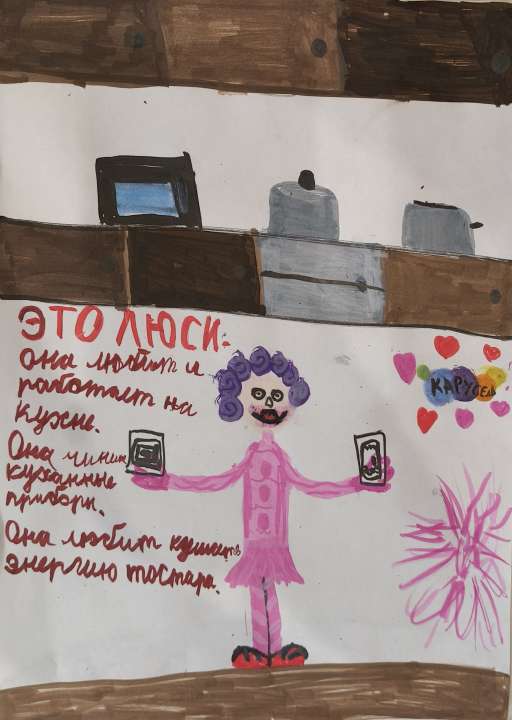 ЭТО ЛЮСИ.
Она любит и
работает на
кухне.
Она чинит
кухонные
приборы.
Она любит кушать
энергию тостара.
КАРУСЕЛЬ